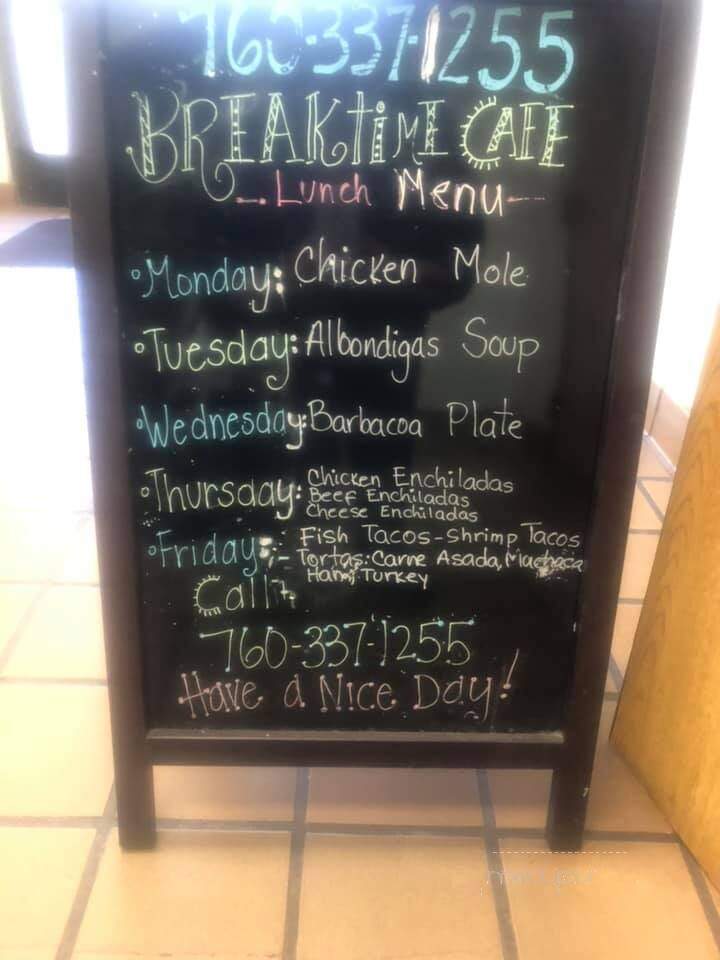 760-337-1255
BREAKTIME CAFE
Lunch Menu
Monday: Chicken Mole
Tuesday: Albondigas Soup
Wednesday: Barbacoa Plate
Thursday: Chicken Enchiladas
Beef Enchiladas
Cheese Enchiladas
Friday: Fish Tacos - Shrimp Tacos
- Tortas: Carne Asada, Machaca
Ham, Turkey
Call:
760-337-1255
Have a Nice Day!